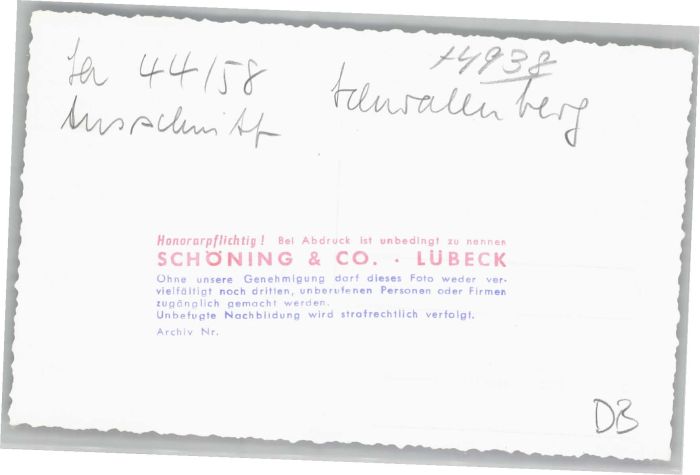 44/58
+4938
Schwalenberg
Ausschnitt
Honorarpflichtig! Bei Abdruck ist unbedingt zu nennen
SCHÖNING & CO. · LÜBECK
Ohne unsere Genehmigung darf dieses Foto weder ver-
vielfältigt noch dritten, unberufenen Personen oder Firmen
zugänglich gemacht werden.
Unbefugte Nachbildung wird strafrechtlich verfolgt.
Archiv Nr.
DB